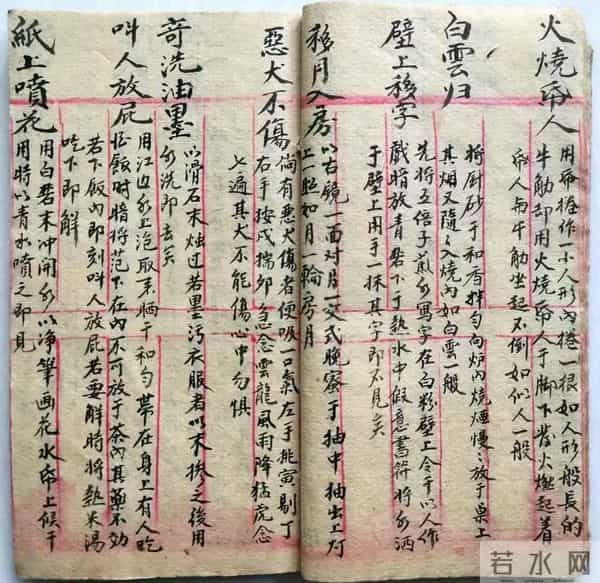 火燒帋人
用帋捲作一小人形內捲一根如人形般長的
牛觔却用火燒帋人于脚下發火燃起着
帋人而牛觔坐起不倒如似人一般
白雲归
將厨砂于和香拌匀向炉內燒烟慢々放于桌上
其烟又隨々入燒內如白雲一般
壁上移字
先將五倍子煎水寫字在白粉壁上令干以人作
戲暗放青礬下于熱水中假意書符將水洒
于壁上用手一抹其字即不見矣
移月入房
以右鏡一面对月一交式晚察于抽中抽出上灯
上照如月一輪房月
惡犬不傷
倘有惡犬傷者便吸一口氣左手桃寅剔丁
右手按戌揣卯急念雲龍風雨降猛虎念
七遍其犬不能傷心中勿惧
奇洗油墨
以滑石末烛过若墨污衣服者以末搽之後用
水洗即去矣
叫人放屁
用江边水上泡取来晒干和匀帶在身上有人吃
飯时暗将范下在內不可放于茶內其藥不効
若下飯內即刻叫人放屁若要解時將熱米湯
吃下即解
紙上噴花
用白礬末冲開水以净筆画花水帋上候干
用時以青水噴之即見
若水网